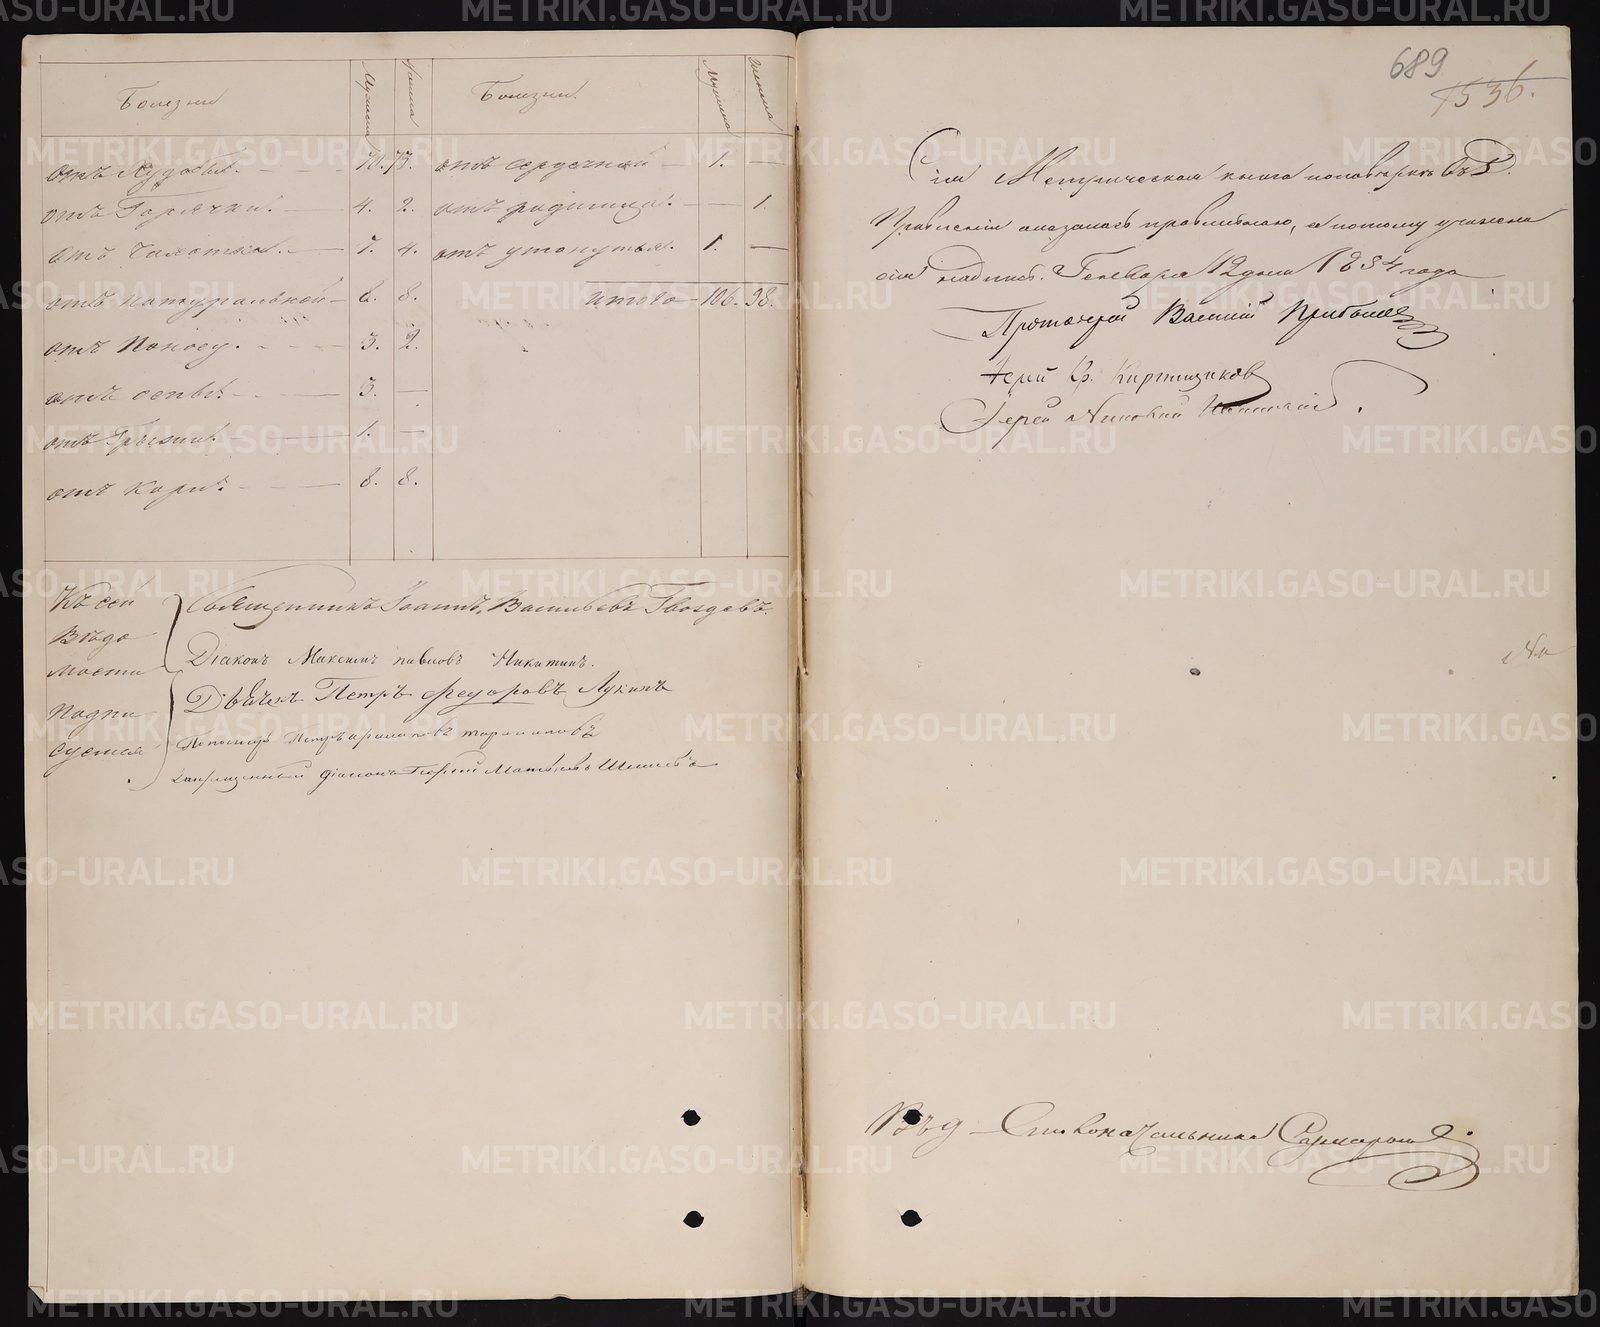 Болезни
Мужска
Женска
Болезни.
Мужска
Женска
отъ Худобы. 70. 73. отъ сердечной 1. —
отъ Горячки. 4. 2. отъ родимца. — 1.
отъ Чахотки. 7. 4. отъ утонутья. 1. —
отъ натуральной 8. 8. итого 106. 98.
отъ Поносу. 3. 2.
отъ оспы. 3. —
отъ Грыжи. 1. —
отъ Кори. 8. 8.
Къ сей
Вѣдо
мости
подпи
суемся
Священникъ Іоаннъ Васильевъ Гвоздевъ.
Діаконъ Максимъ павловъ Никитинъ.
Дьячекъ Петръ Федоровъ Лукинъ
Пономарь Петръ
запрещенный діаконъ Георгій Матвѣевъ Шишевъ
689
1536.
Сія Метрическая книга по повѣркѣ въ Д.
Правленіи оказалась правильною, а потому учинена
сія надпись. Генваря 12 дня 1834 года
Протоіерей Василій
Іерей Кирпищиковъ
Іерей
Столоначальника
METRIKI.GASO-URAL.RU